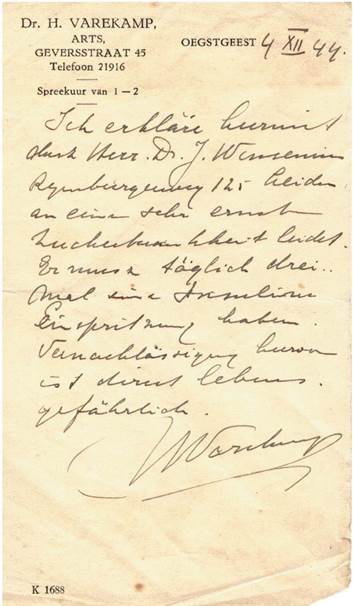 Dr. H. VAREKAMP,
ARTS,
GEVERSSTRAAT 45
Telefoon 21916
Spreekuur van 1—2
OEGSTGEEST 4 XII 44.
Ich erkläre hiermit
dass Herr. Dr. J.
125 Leiden
an eine sehr ernste
Zuckerkrankheit leidet.
Er muss täglich drei..
mal eine Insuline
Einspritzung haben.
Vernachlässigung hievon
ist direct lebens.
gefährlich.
HVarekamp
K 1688